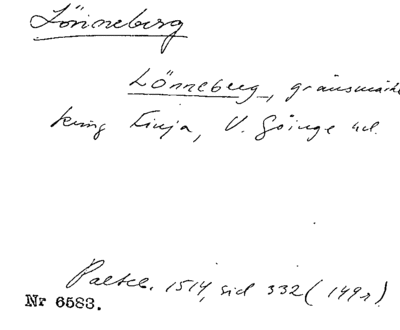 Lönneberg
Lönneberg, gränsmärke
kring Finja, V. Göinge hd.
Paltsb. 1514, sid 332 (1491)
Nr 6583.